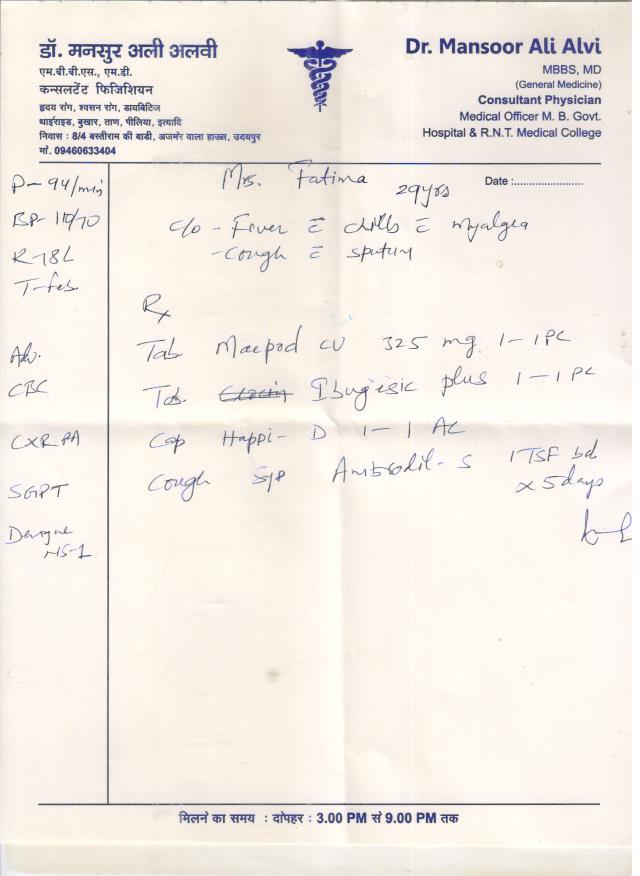 डॉ. मनसुर अली अलवी
एम.बी.बी.एस., एम.डी.
कन्सलटेंट फिजिशियन
हृदय रोग, श्वसन रोग, डायबिटिज
थाईराईड, बुखार, ताण, पीलिया, इत्यादि
निवास : 8/4 बस्तीराम की बाडी, अजमेर वाला हाऊस, उदयपुर
मो. 09460633404
Dr. Mansoor Ali Alvi
MBBS, MD
(General Medicine)
Consultant Physician
Medical Officer M. B. Govt.
Hospital & R.N.T. Medical College
Mrs. Fatima 29yrs Date :.......................
P- 94/min
BP- 110/70
R-18/
T-feb
c/o - Fever c̄ chills c̄ myalgea
- Cough c̄ sputum
Rx
Tab Macpod CV 325 mg 1-1 PC
Tab. Ibugesic plus 1-1 PC
Cap Happi-D 1-1 AC
Cough Syp Ambrodil-S 1 TSF bd
x 5 days
Adv.
CBC
CXR PA
SGPT
Dengue
NS-1
मिलने का समय : दोपहर : 3.00 PM से 9.00 PM तक